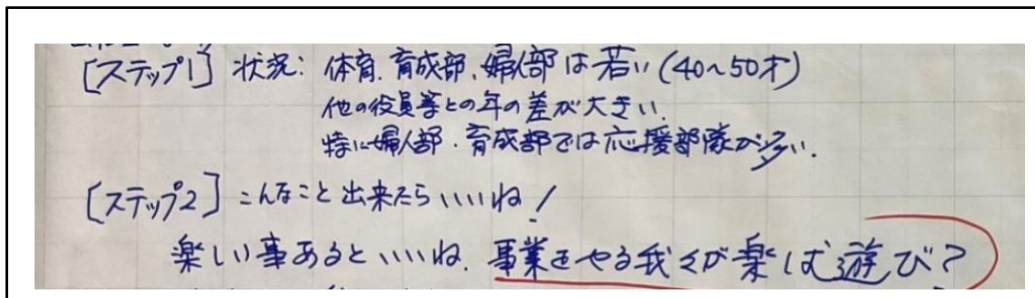 [ステップ1] 状況: 体育、育成部、婦人部は若い(40~50才)
他の役員等との年の差が大きい。
特に婦人部・育成部では応援部隊が多い。
[ステップ2] こんなこと出来たらいいね!
楽しい事あるといいね。事業をやる我々が楽しむ遊び?